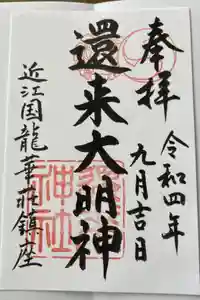 奉拝
令和四年
九月吉日
還来大明神
近江国龍華荘鎮座